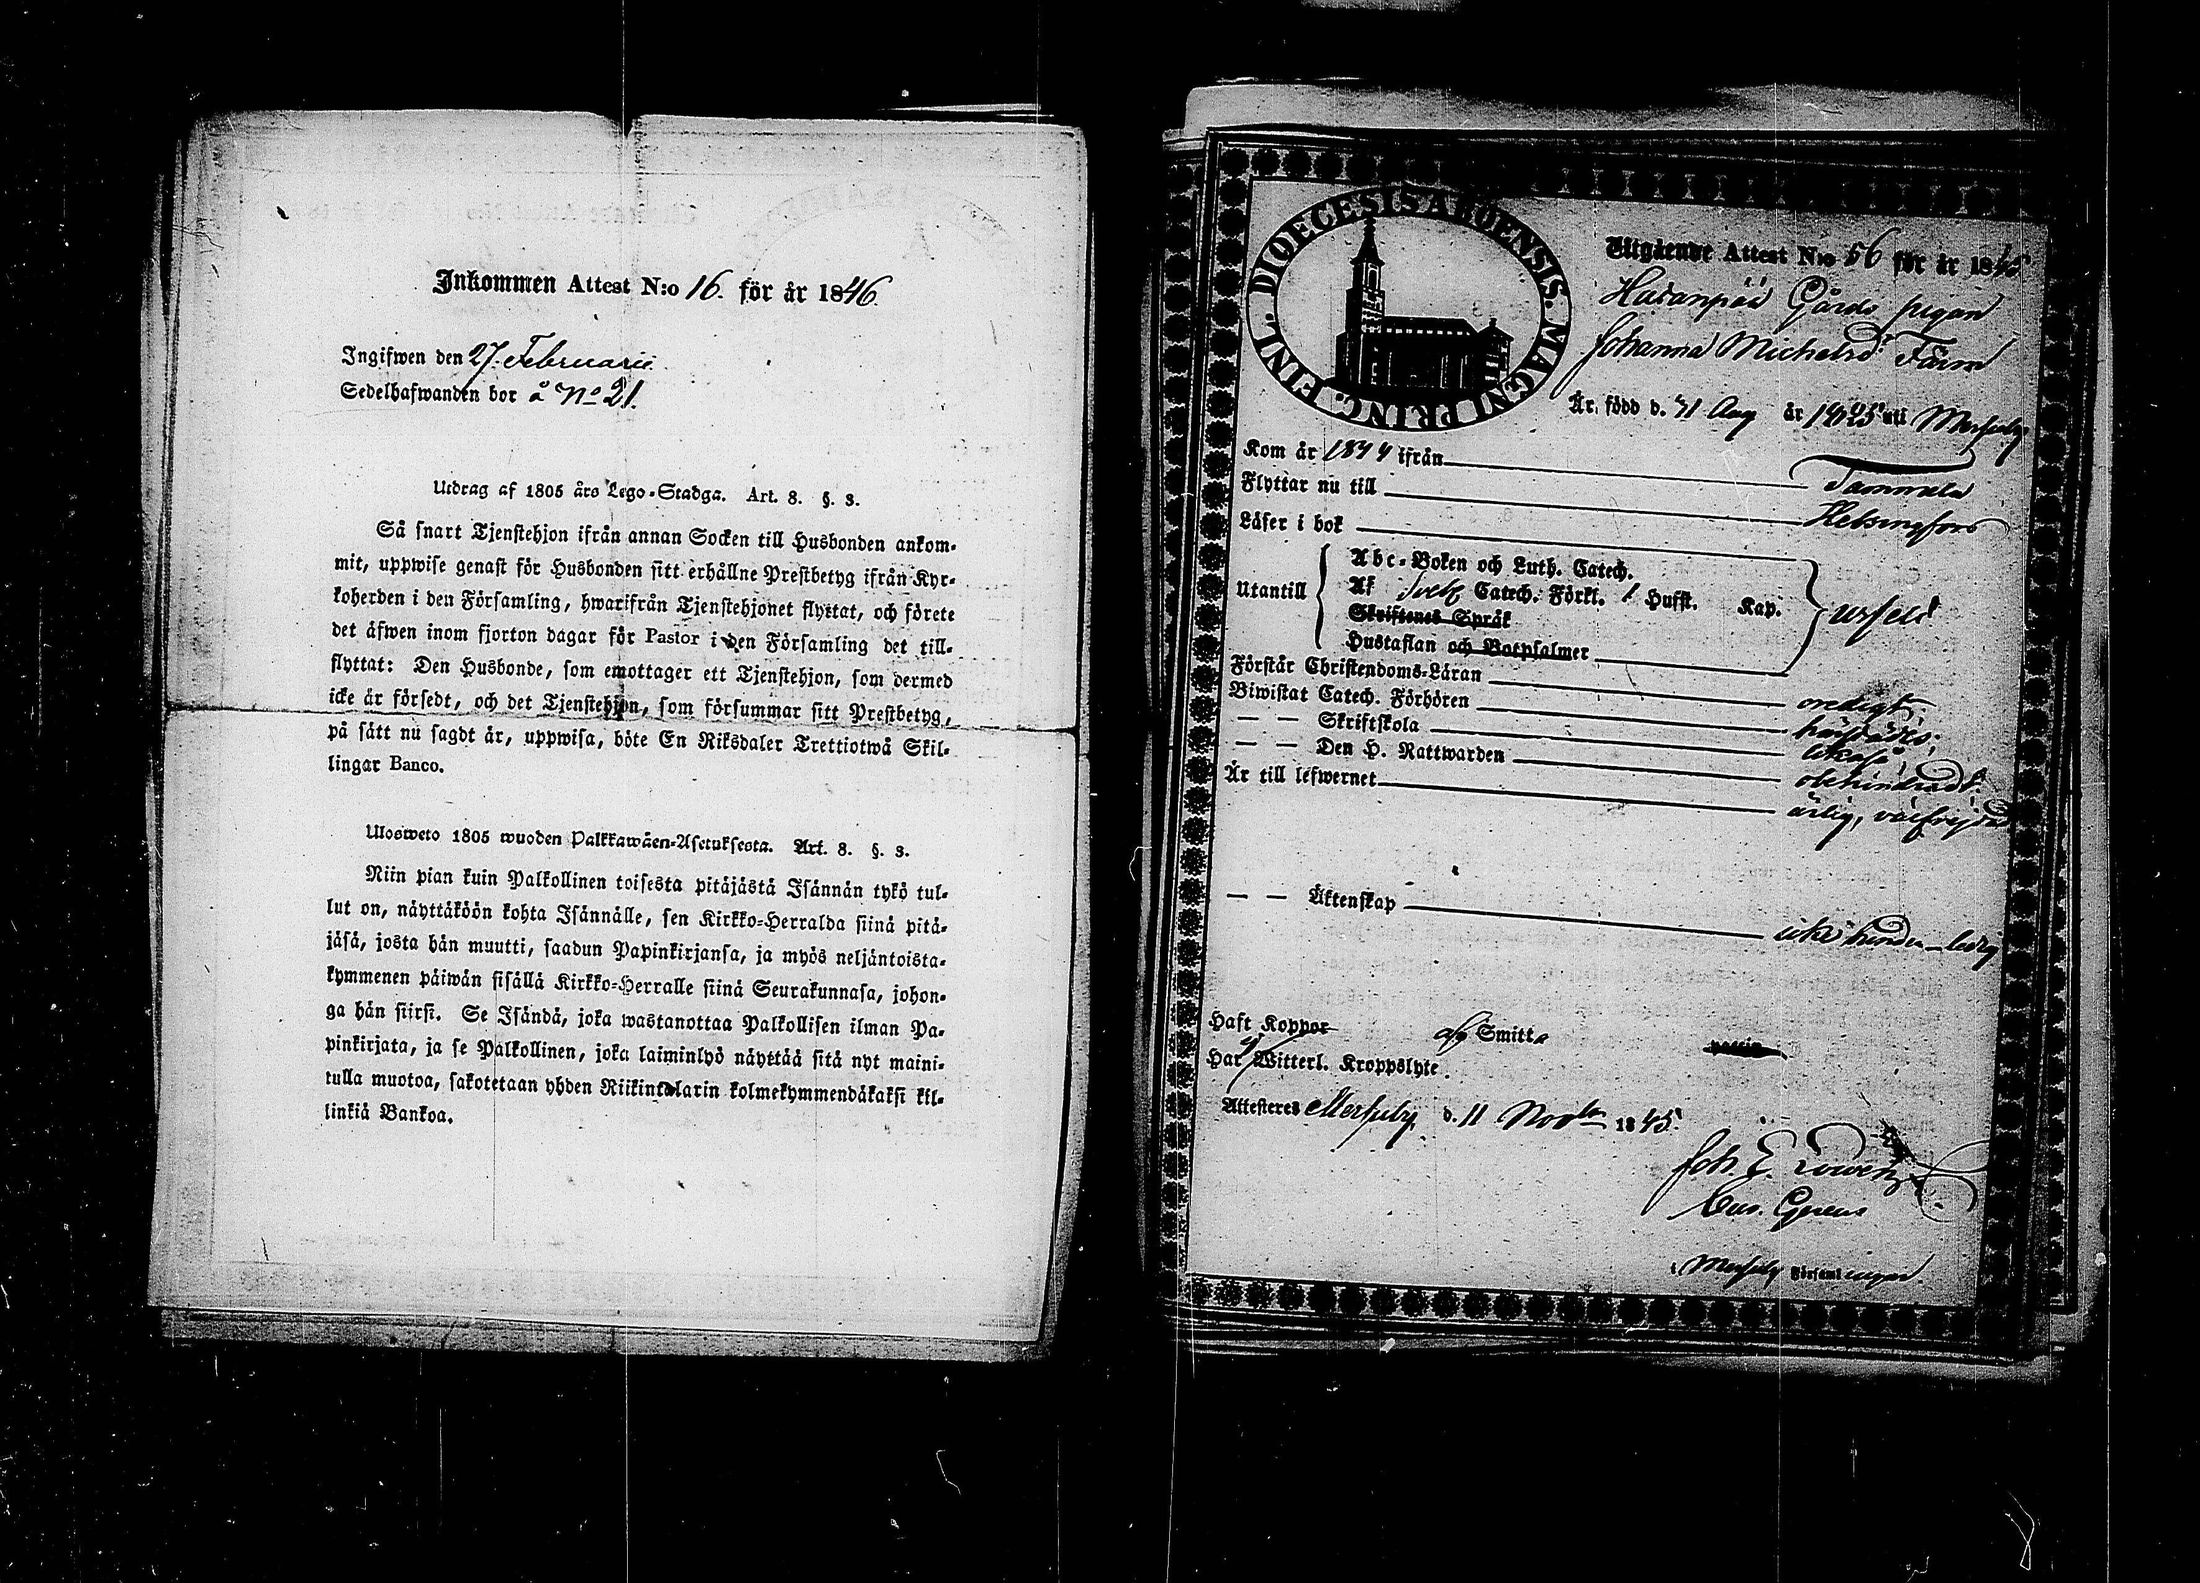 Inkommen Attest N:o 16. för år 1846
Ingifwen den 27. Februarii
Sedelhafwanden bor å No 21.
Utdrag af 1805 års Lego-Stadga. Art. 8. §. 3.
Så snart Tjenstehjon ifrån annan Socken till Husbonden ankom-
mit, uppwise genast för Husbonden sitt erhållne Prestbetyg ifrån Kyr-
koherden i den Församling, hwarifrån Tjenstehjonet flyttat, och förete
det äfwen inom fjorton dagar för Pastor i den Församling det till-
flyttat: Den Husbonde, som emottager ett Tjenstehjon, som dermed
icke är försedt, och det Tjenstehjon, som försummar sitt Prestbetyg,
på sätt nu sagdt är, uppwisa, böte En Riksdaler Trettiotwå Skil-
lingar Banco.
Ulosweto 1805 wuoden Palkkawäen-Asetuksesta. Art. 8. §. 3.
Niin pian kuin Palkollinen toisesta pitäjästä Isännän tykö tul-
lut on, näyttäköön kohta Isännälle, sen Kirkko-Herralda siinä pitä-
jäsä, josta hän muutti, saadun Papinkirjansa, ja myös neljäntoista-
kymmenen päiwän sisällä Kirkko-Herralle siinä Seurakunnasa, johon-
ga hän siirsi. Se Isändä, joka wastanottaa Palkollisen ilman Pa-
pinkirjata, ja se Palkollinen, joka laiminlyö näyttää sitä nyt maini-
tulla muotoa, sakotetaan yhden Riikintalarin kolmekymmendäkaksi kil-
linkiä Bankoa.
DIOECESIS ABOENSIS. MAGNI PRINC. FINL.
Utgående Attest N:o 56 för år 1845
Hatanpää Gårds pigan
Johanna Michelsd Färm
Är, född d. 31 Aug år 1825 uti Messuby
Kom år 1844 ifrån Tammela
Flyttar nu till Helsingfors
Läser i bok
Utantill
Abc-Boken och Luth. Catech.
Af Sveb Catech. Förkl. 1 Hufst. Kap.
Skriftenes Språk
Hustaflan och Botpsalmer
Förstår Christendoms-Läran
Biwistat Catech. Förhören
— — Skriftskola
— — Den H. Nattwarden obehindradt
Är till lefwernet ärlig, välfrejdad
— — Äktenskap icke hinder_ledig
Haft Koppor Smitta
Har Witterl. Kroppslyte.
Attesteres Messuby d. 11 Novbr 1845.
Joh. E.
i Messuby Församlingar.